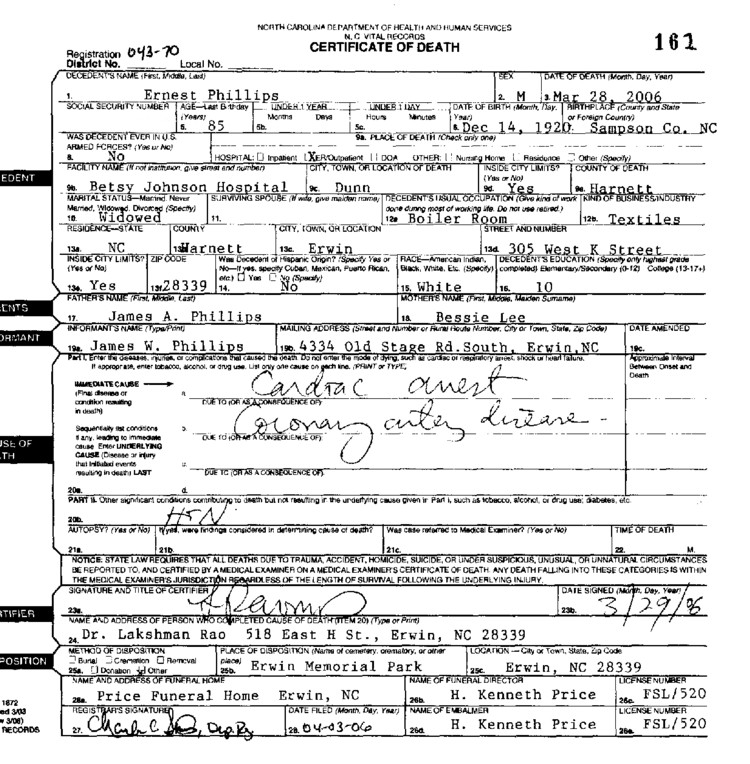 NORTH CAROLINA DEPARTMENT OF HEALTH AND HUMAN SERVICES
N.C. VITAL RECORDS
CERTIFICATE OF DEATH
161
Registration District No. 043-70 Local No.
DECEDENT'S NAME (First, Middle, Last) SEX DATE OF DEATH (Month, Day, Year)
1. Ernest Phillips 2. M 3. Mar 28, 2006
SOCIAL SECURITY NUMBER AGE—Last Birthday (Years) UNDER 1 YEAR Months Days UNDER 1 DAY Hours Minutes DATE OF BIRTH (Month, Day, Year) BIRTHPLACE (County and State or Foreign Country)
5. 85 5b. 5c. 6. Dec 14, 1920 Sampson Co. NC
WAS DECEDENT EVER IN U.S. ARMED FORCES? (Yes or No) 9a. PLACE OF DEATH (Check only one)
8. No HOSPITAL: Inpatient X ER/Outpatient DOA OTHER: Nursing Home Residence Other (Specify)
FACILITY NAME (If not institution, give street and number) CITY, TOWN, OR LOCATION OF DEATH INSIDE CITY LIMITS? (Yes or No) COUNTY OF DEATH
EDENT
9b. Betsy Johnson Hospital 9c. Dunn 9d. Yes 9e. Harnett
MARITAL STATUS—Married, Never Married, Widowed, Divorced (Specify) SURVIVING SPOUSE (If wife, give maiden name) DECEDENT'S USUAL OCCUPATION (Give kind of work done during most of working life. Do not use retired.) KIND OF BUSINESS/INDUSTRY
10. Widowed 11. 12a Boiler Room 12b. Textiles
RESIDENCE—STATE COUNTY CITY, TOWN, OR LOCATION STREET AND NUMBER
13a. NC 13b Harnett 13c. Erwin 13d. 305 West K Street
INSIDE CITY LIMITS? (Yes or No) ZIP CODE Was Decedent of Hispanic Origin? (Specify Yes or No—If yes, specify Cuban, Mexican, Puerto Rican, etc.) Yes No (Specify) RACE—American Indian, Black, White, Etc. (Specify) DECEDENT'S EDUCATION (Specify only highest grade completed) Elementary/Secondary (0-12) College (13-17+)
13e. Yes 13f. 28339 14. No 15. White 16. 10
FATHER'S NAME (First, Middle, Last) MOTHER'S NAME (First, Middle, Maiden Surname)
ENTS
17. James A. Phillips 18. Bessie Lee
INFORMANT'S NAME (Type/Print) MAILING ADDRESS (Street and Number or Rural Route Number, City or Town, State, Zip Code) DATE AMENDED
ORMANT
19a. James W. Phillips 19b. 4334 Old Stage Rd.South, Erwin,NC 19c.
Part I. Enter the diseases, injuries, or complications that caused the death. Do not enter the mode of dying, such as cardiac or respiratory arrest, shock or heart failure.
If appropriate, enter tobacco, alcohol, or drug use. List only one cause on each line. (PRINT or TYPE)
Approximate Interval Between Onset and Death
IMMEDIATE CAUSE (Final disease or condition resulting in death) a. Cardiac arrest
DUE TO (OR AS A CONSEQUENCE OF):
Sequentially list conditions if any, leading to immediate cause. Enter UNDERLYING CAUSE (Disease or injury that initiated events resulting in death) LAST
b. Coronary artery disease -
DUE TO (OR AS A CONSEQUENCE OF):
c.
DUE TO (OR AS A CONSEQUENCE OF):
USE OF
TH
20a. d.
PART II. Other significant conditions contributing to death but not resulting in the underlying cause given in Part I, such as tobacco, alcohol, or drug use; diabetes, etc.
20b. HTN
AUTOPSY? (Yes or No) If yes, were findings considered in determining cause of death? Was case referred to Medical Examiner? (Yes or No) TIME OF DEATH
21a. 21b. 21c. 22. M.
NOTICE: STATE LAW REQUIRES THAT ALL DEATHS DUE TO TRAUMA, ACCIDENT, HOMICIDE, SUICIDE, OR UNDER SUSPICIOUS, UNUSUAL, OR UNNATURAL CIRCUMSTANCES
BE REPORTED TO, AND CERTIFIED BY A MEDICAL EXAMINER ON A MEDICAL EXAMINER'S CERTIFICATE OF DEATH. ANY DEATH FALLING INTO THESE CATEGORIES IS WITHIN
THE MEDICAL EXAMINER'S JURISDICTION REGARDLESS OF THE LENGTH OF SURVIVAL FOLLOWING THE UNDERLYING INJURY.
SIGNATURE AND TITLE OF CERTIFIER DATE SIGNED (Month, Day, Year)
RTIFIER
23a. 23b. 3/29/06
NAME AND ADDRESS OF PERSON WHO COMPLETED CAUSE OF DEATH (ITEM 20) (Type or Print)
24. Dr. Lakshman Rao 518 East H St., Erwin, NC 28339
METHOD OF DISPOSITION PLACE OF DISPOSITION (Name of cemetery, crematory, or other place) LOCATION — City or Town, State, Zip Code
POSITION
Burial Cremation Removal
25a. Donation Other 25b. Erwin Memorial Park 25c. Erwin, NC 28339
NAME AND ADDRESS OF FUNERAL HOME NAME OF FUNERAL DIRECTOR LICENSE NUMBER
26a. Price Funeral Home Erwin, NC 26b. H. Kenneth Price 26c. FSL/520
REGISTRAR'S SIGNATURE DATE FILED (Month, Day, Year) NAME OF EMBALMER LICENSE NUMBER
27. 28. 04-03-06 26d. H. Kenneth Price 26e. FSL/520
1872
ed 3/03
w 3/08)
RECORDS